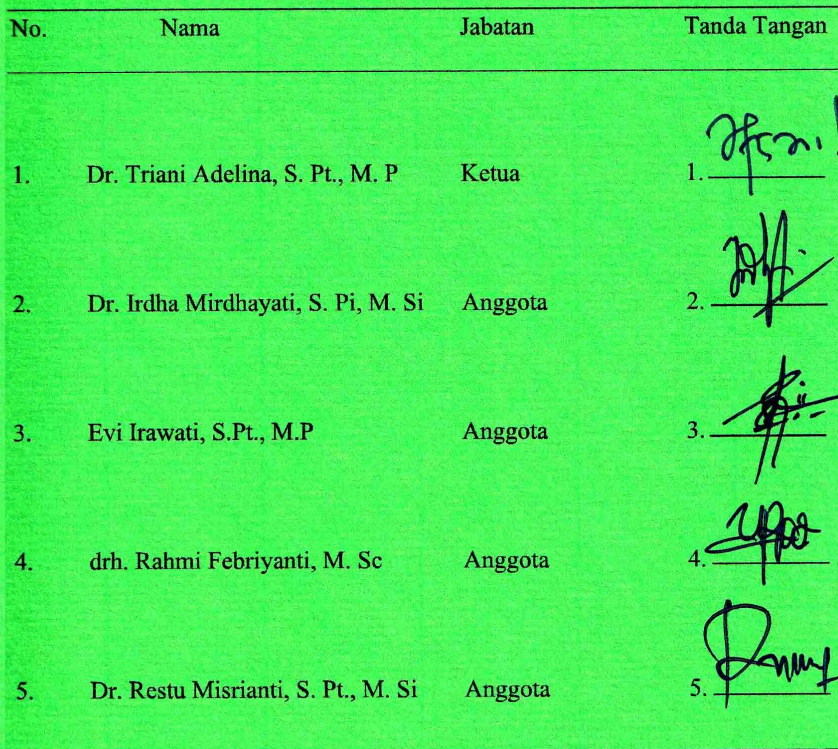 No. Nama Jabatan Tanda Tangan
1. Dr. Triani Adelina, S. Pt., M. P Ketua 1.
2. Dr. Irdha Mirdhayati, S. Pi, M. Si Anggota 2.
3. Evi Irawati, S.Pt., M.P Anggota 3.
4. drh. Rahmi Febriyanti, M. Sc Anggota 4.
5. Dr. Restu Misrianti, S. Pt., M. Si Anggota 5.